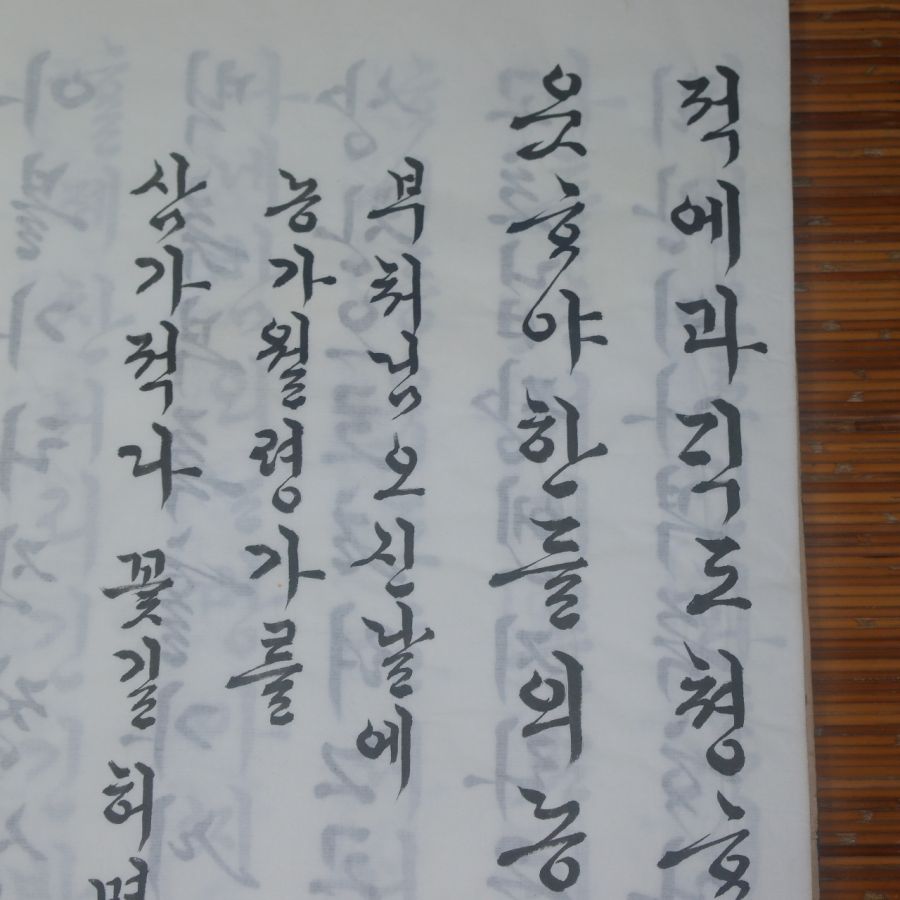 적에과직도쳥ᄒᆞ
읏ᄒᆞ야한들의농
부쳐님오신날에
농가월령가를
삼가적다 꽃길 허명